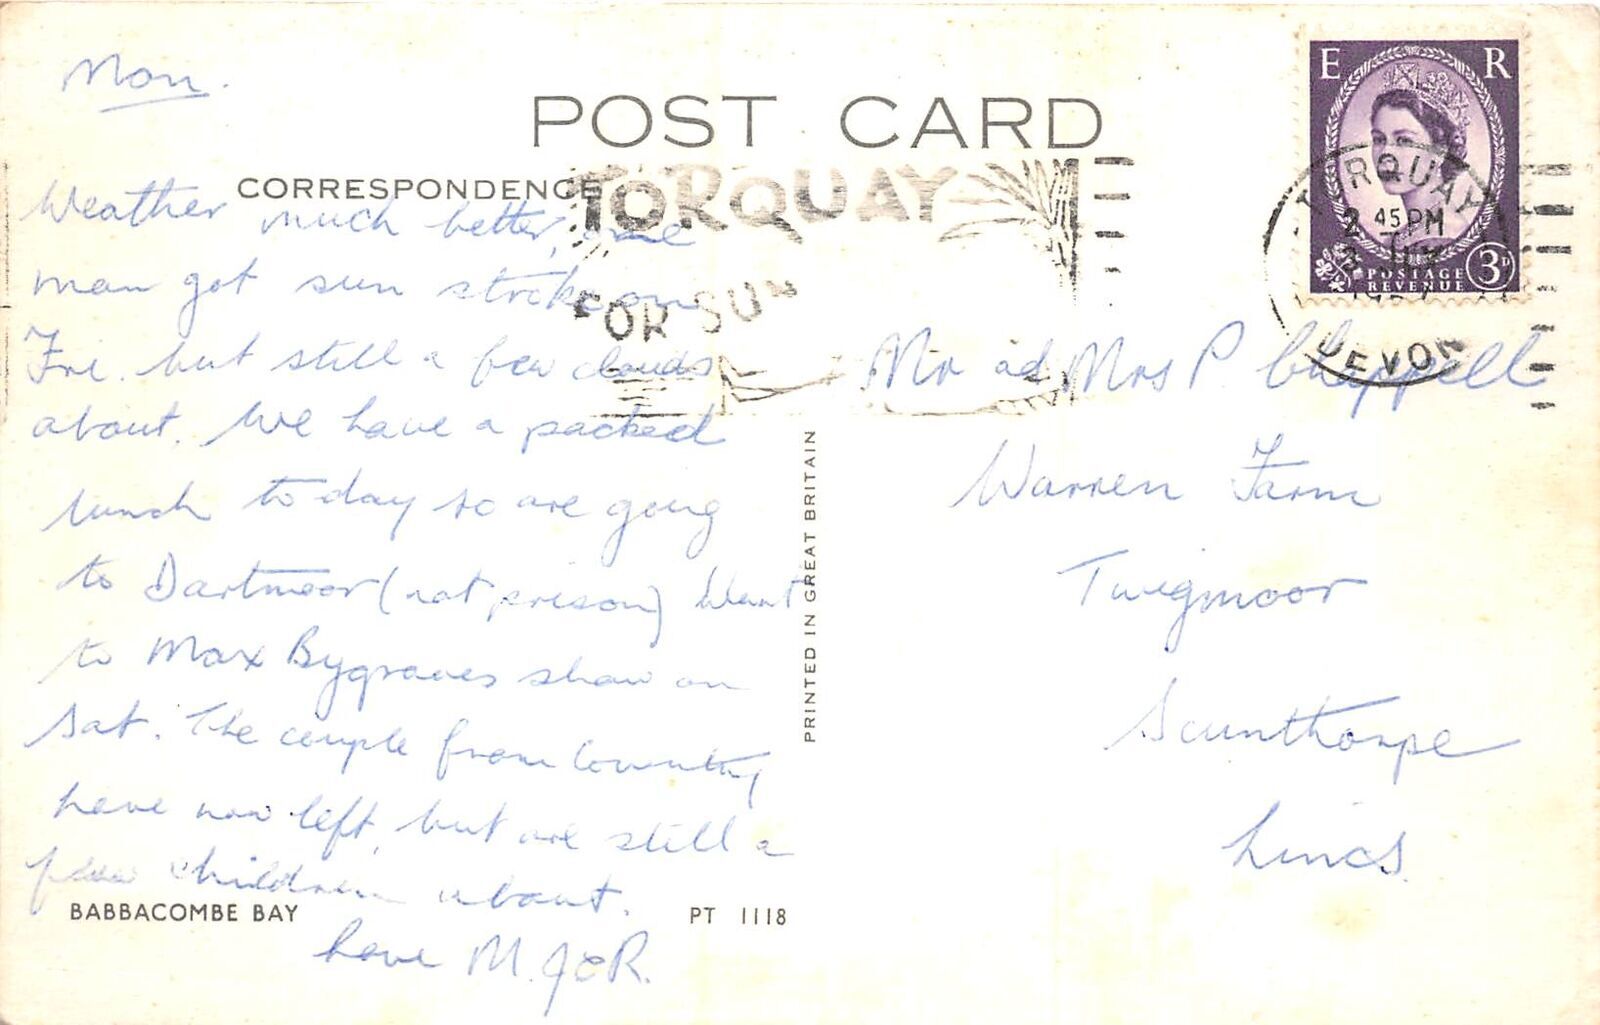 Mon.
POST CARD
CORRESPONDENCE
TORQUAY
FOR SUN
E R
TORQUAY
2 45 PM
DEVON
POSTAGE
REVENUE
3D
Weather much better, one
man got sun stroke on
Fri. but still a few clouds
about. We have a packed
lunch to day so are going
to Dartmoor (not prison) Went
to Max Bygraves show on
Sat. The couple from Coventry
have now left, but are still a
few children about.
Love M. J & R.
BABBACOMBE BAY
PT 1118
PRINTED IN GREAT BRITAIN
Mr ad Mrs P. Chappell
Warren Farm
Twigmoor
Scunthorpe
Lincs.